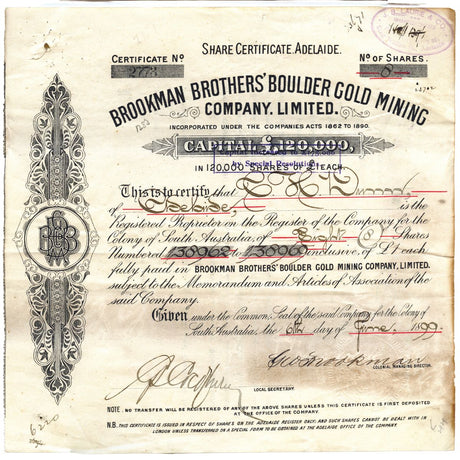 SHARE CERTIFICATE. ADELAIDE.
CERTIFICATE Nº
Nº OF SHARES.
2773
8
BROOKMAN BROTHERS' BOULDER GOLD MINING
COMPANY. LIMITED.
INCORPORATED UNDER THE COMPANIES ACTS 1862 TO 1890.
CAPITAL £120,000,
Special Resolution
IN 120,000 SHARES OF £1 EACH.
This is to certify that
of Adelaide, is the
Registered Proprietor in the Register of the Company for the
Colony of South Australia, of Eight (8) Shares
Numbered to inclusive of £1 each
fully paid in BROOKMAN BROTHERS' BOULDER GOLD MINING COMPANY, LIMITED.
subject to the Memorandum and Articles of Association of the
said Company.
Given under the Common Seal of the said Company for the Colony of
South Australia, the 6th day of June 1899
BBB
Geo Brookman
COLONIAL MANAGING DIRECTOR.
LOCAL SECRETARY.
NOTE. NO TRANSFER WILL BE REGISTERED OF ANY OF THE ABOVE SHARES UNLESS THIS CERTIFICATE IS FIRST DEPOSITED
AT THE OFFICE OF THE COMPANY
N.B. THIS CERTIFICATE IS ISSUED IN RESPECT OF SHARES ON THE ADELAIDE REGISTER ONLY, AND SUCH SHARES CANNOT BE DEALT WITH IN
LONDON UNLESS TRANSFERRED ON A SPECIAL FORM TO BE OBTAINED AT THE ADELAIDE OFFICE OF THE COMPANY.